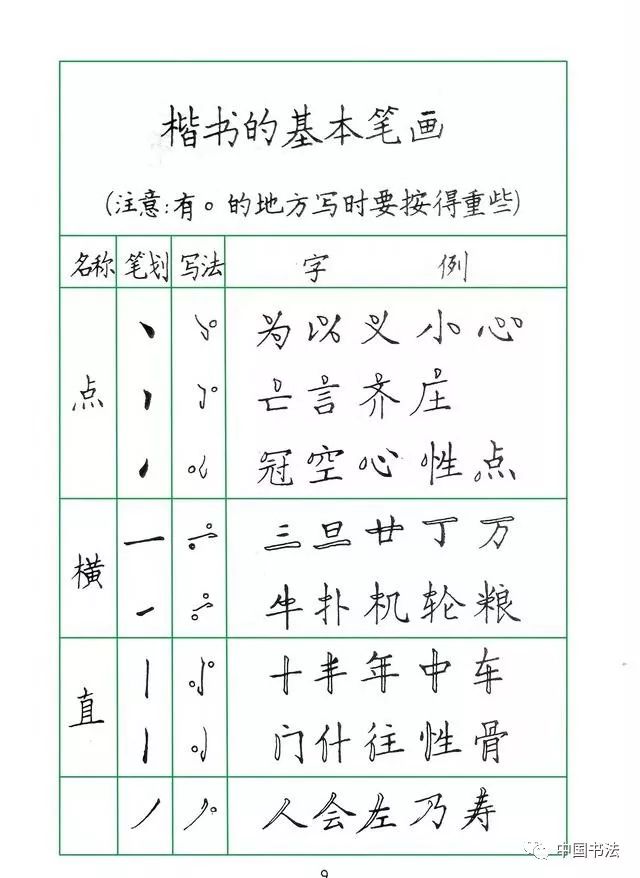 楷书的基本笔画
(注意:有。的地方写时要按得重些)
名称 笔划 写法 字 例
为 以 义 小 心
点 亡 言 齐 庄
冠 空 心 性 点
三 旦 廿 丁 万
横
牛 扑 机 轮 粮
十 半 年 中 车
直
门 什 往 性 骨
人 会 左 乃 寿
中国书法
9